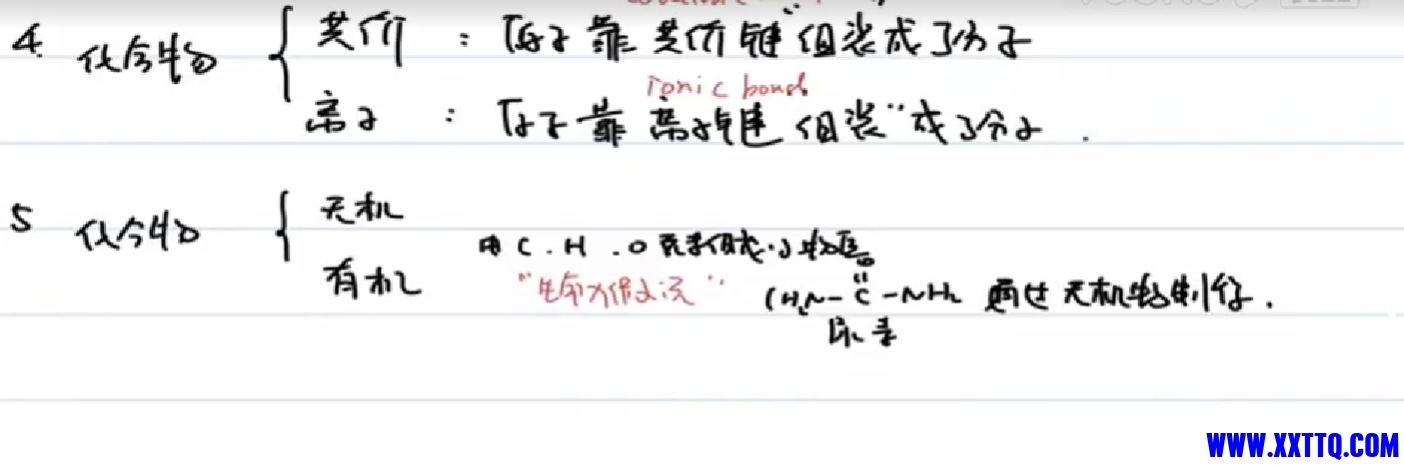 4. 化合物 { 共价 : 原子靠共价键"组装成了分子
Ionic bond
离子 : 原子靠离子键"组装"成了分子.
5 化合物 { 无机
有机 由 C.H.O 元素组成
"生命力 学说" (H₂N-C-NH₂ 通过无机物制得.
O
尿素
WWW.XXTTQ.COM